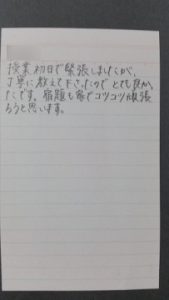 授業初日で緊張しましたが、
丁寧に教えて下さったのでとても良かっ
たです。宿題も家でコツコツ頑張
ろうと思います。